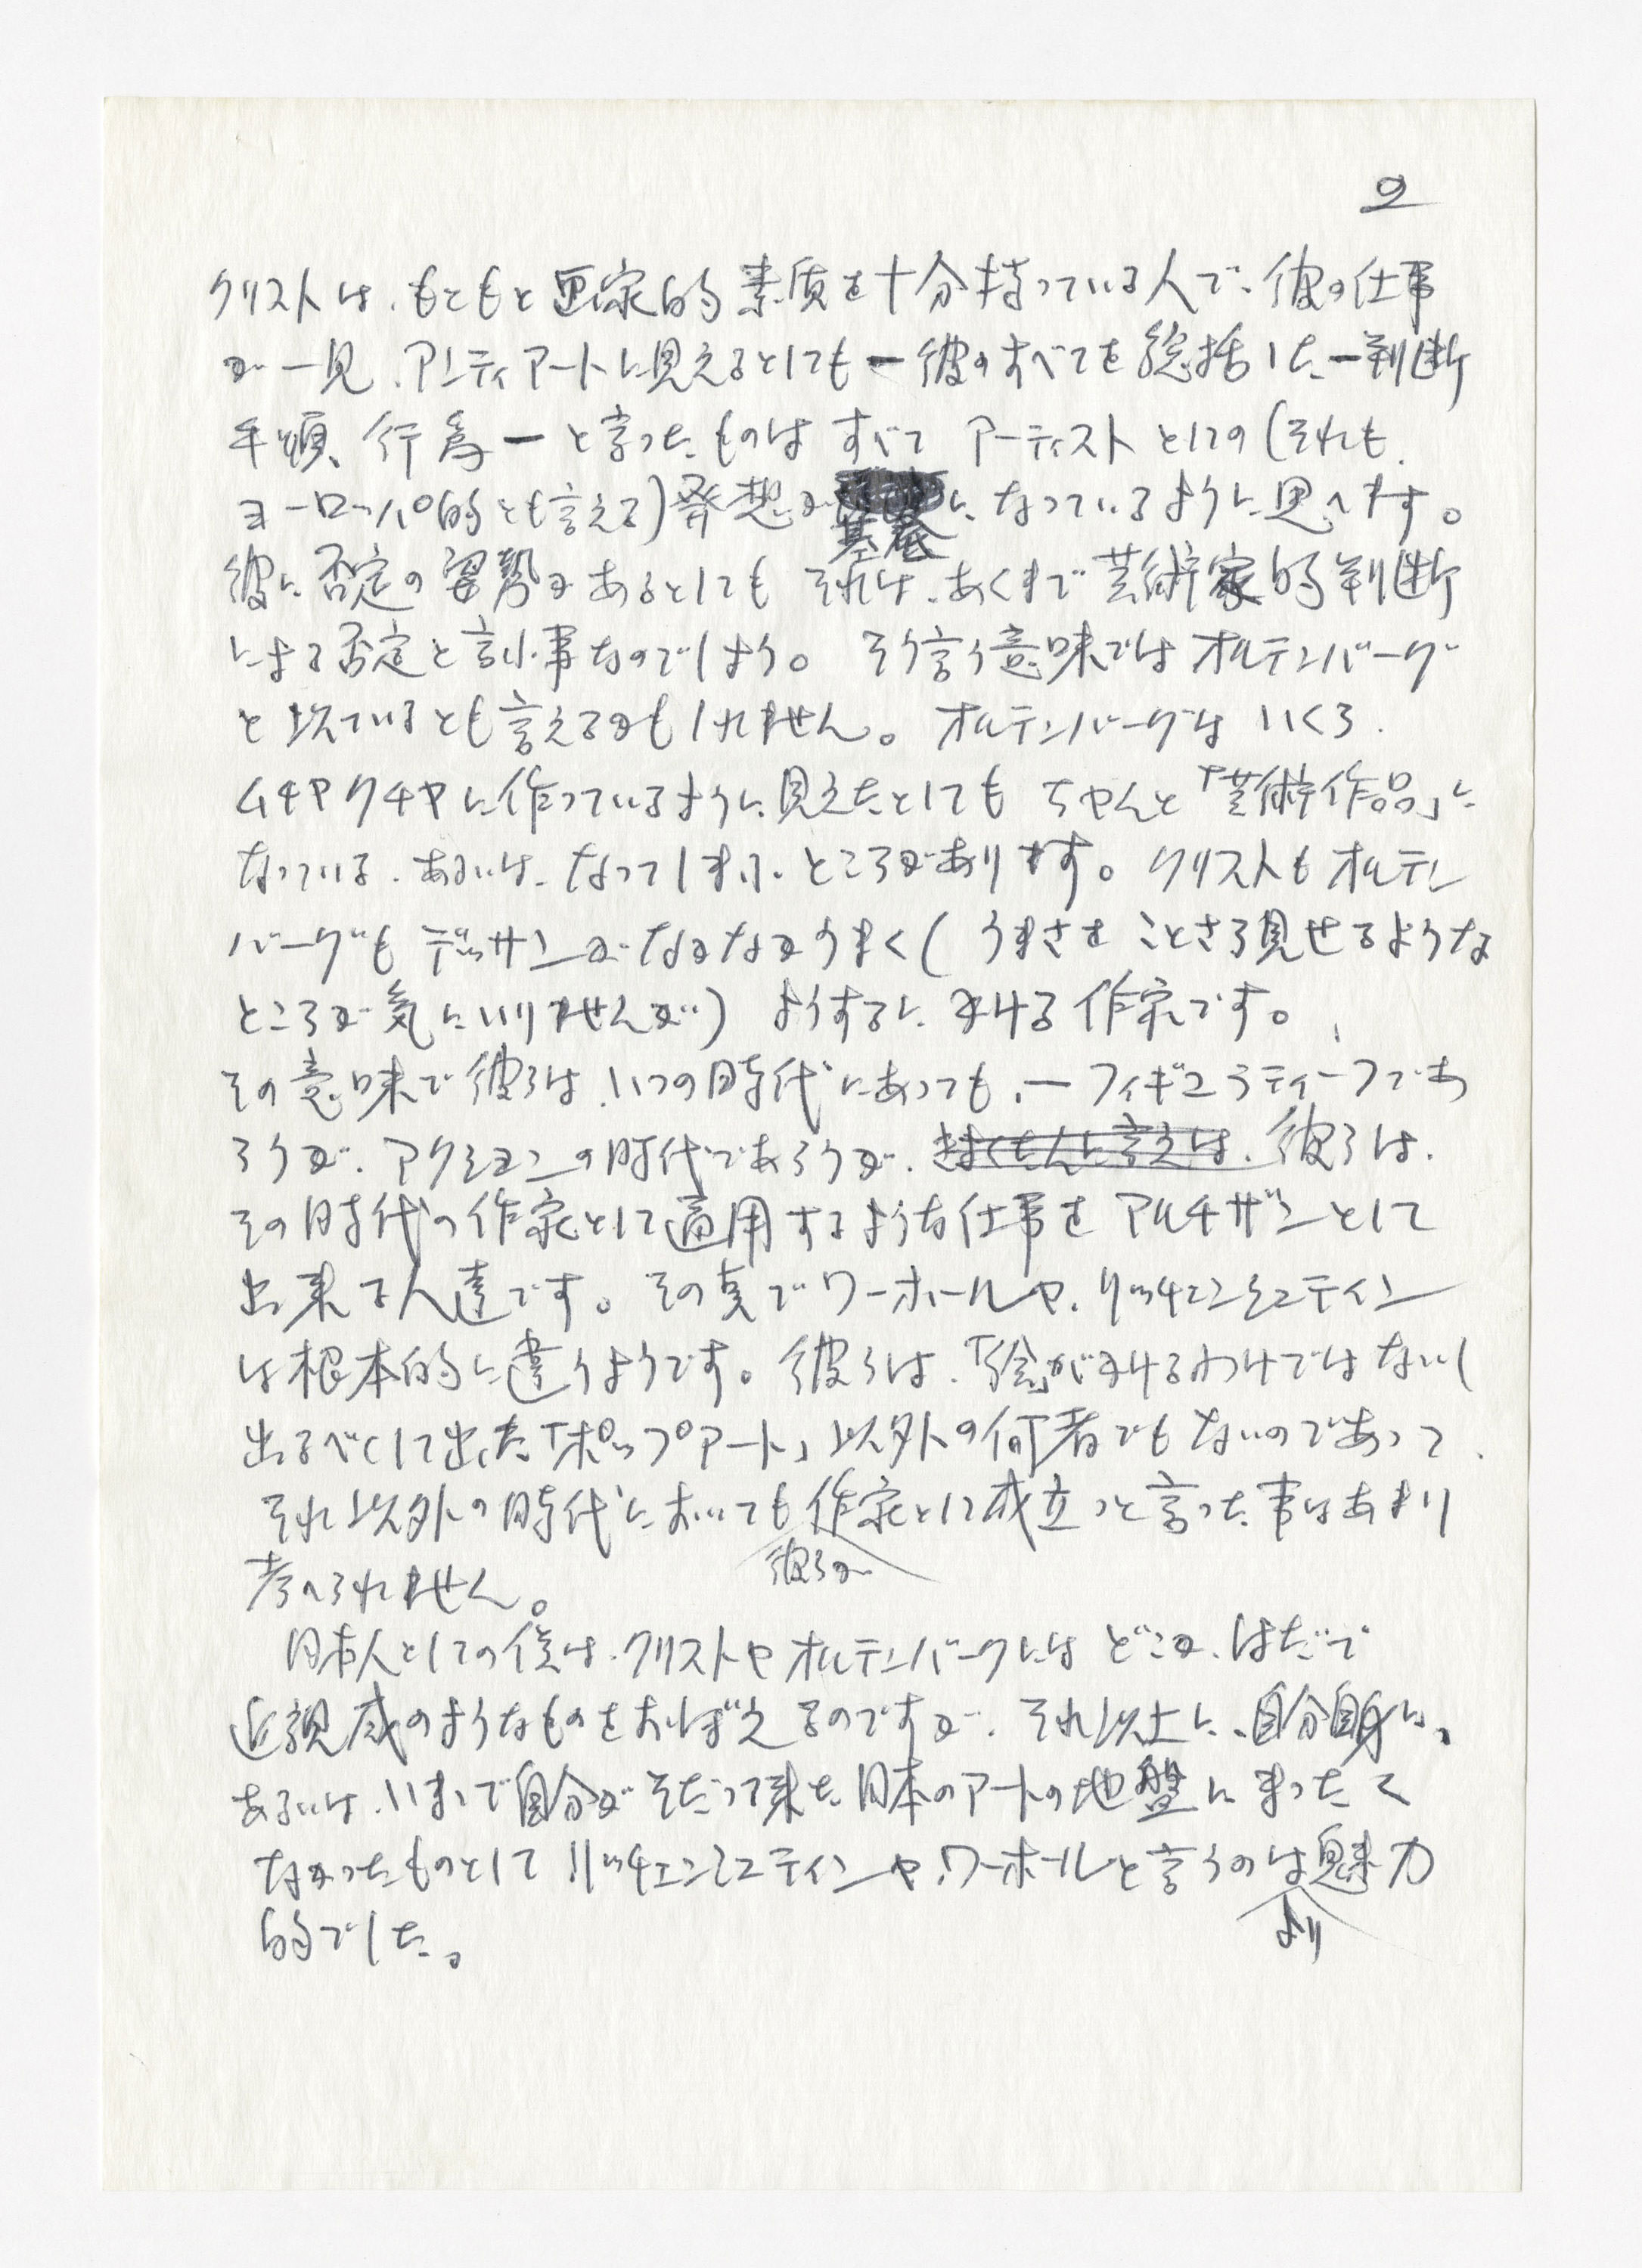 2
クリストは、もともと画家的素質を十分持っている人で、彼の仕事
が一見、アンティアートに見えるとしても ー彼のすべてを総括したー判断
手順、行為ー と言ったものは すべて アーティスト としての（それも、
ヨーロッパ的とも言える）発想が基底になっているように思へます。
彼に否定の姿勢があるとしても それは、あくまで芸術家的判断
による否定と言ふ事なのでしょう。 そう言う意味ではオルデンバーグ
と似ているとも言えるかもしれません。オルデンバーグは いくら、
ムチャクチャに作っているように見えたとしても ちゃんと「芸術作品」に
なっている、あるいは、なってしまふ、ところがあります。クリストもオルデン
バーグも デッサンがなかなかうまく（うまさを ことさら見せるような
ところが気にいりませんが） ようするに かける作家です。
その意味で彼らは、いつの時代にあっても、ーフィギュラティーフであ
ろうが、アクションの時代であろうが、彼らは、
その時代の作家として適用するような仕事を アルチザンとして
出来る人達です。その点でワーホールや、リッチェンシュテイン
は根本的に違うようです。彼らは、「絵」がかけるわけではないし
出るべくして出た「ポップアート」以外の何者でもないのであって、
それ以外の時代においても彼らが作家として成立つと言った事はあまり
考へられません。
日本人としての僕は、クリストやオルデンバークには どこか、はだで
近親感のようなものをおぼえるのですが、それ以上に、自分自身に、
あるいは、いままで自分がそだって来た日本のアートの地盤に まったく
なかったものとして リッチェンシュテインや、ワーホールと言うのはより魅力
的でした。